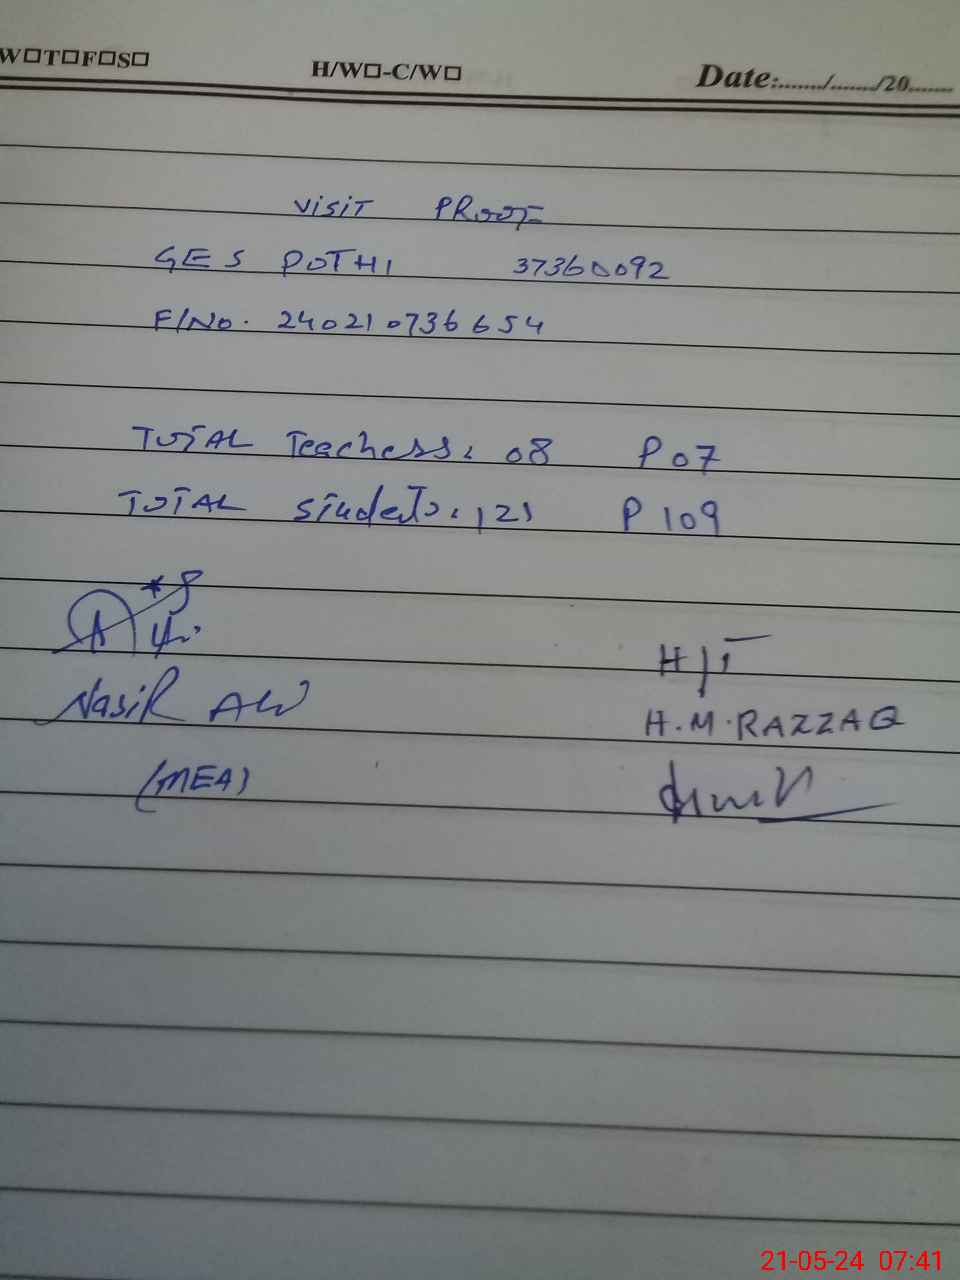 W□T□F□S□ H/W□-C/W□ Date:......./......./20.......
VISIT PROOF
GES POTHI 37360092
F/No. 240210736654
TOTAL Teachers: 08 P 07
TOTAL Students: 121 P 109
H/T
Nasir Ali H.M.RAZZAQ
(MEA)
21-05-24 07:41